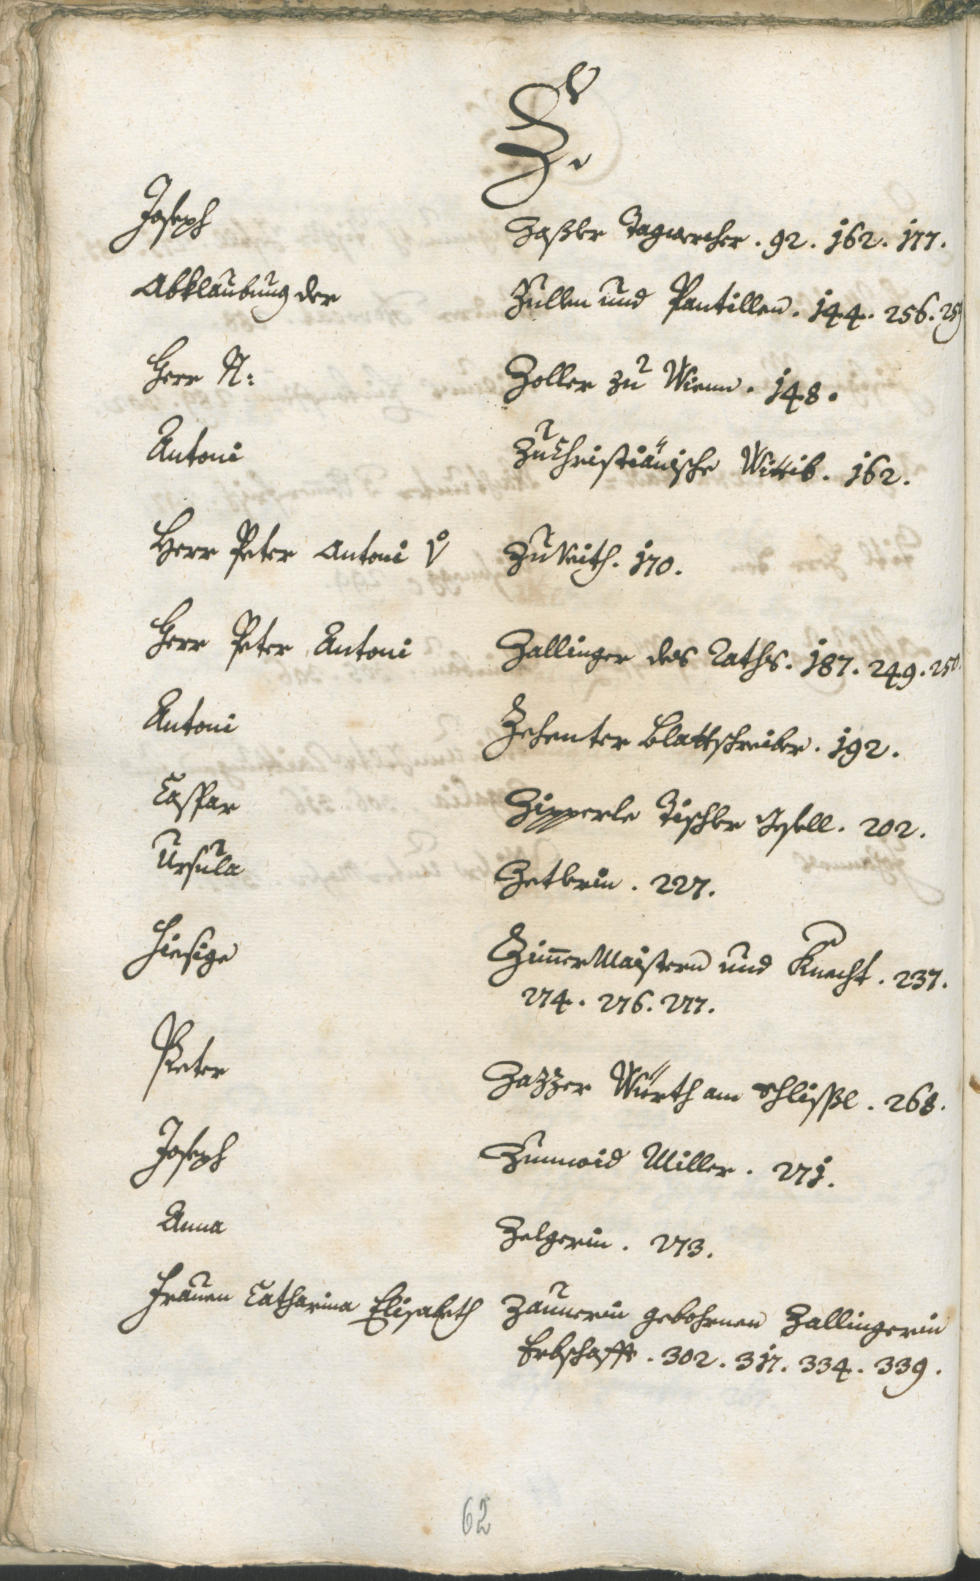 Z.
Joseph Zaßler Tagwercher. 92. 162. 177.
Abklaubung der Zullen und Pantillen. 144. 256. 259
Herr N: Zoller zu Wienn. 148.
Antoni Zuchristiänische Wittib. 162.
Herr Peter Antoni V Zu Veith. 170.
Herr Peter Antoni Zallinger des Raths. 187. 249. 250.
Antoni Zehenter Blattschreiber. 192.
Caspar Zipperle Tischler Gsell. 202.
Ursula Zetlerin. 227.
Hiesige Zimmer Maistern und Knecht. 237.
274. 276. 277.
Peter Zazzer Würth am Schlißl. 268.
Joseph Zumwid Miller. 271.
Anna Zelgerin. 273.
Frauen Catharina Elisabeth Zaunerin gebohrnen Zallingerin
Erbschafft. 302. 317. 334. 339.
62